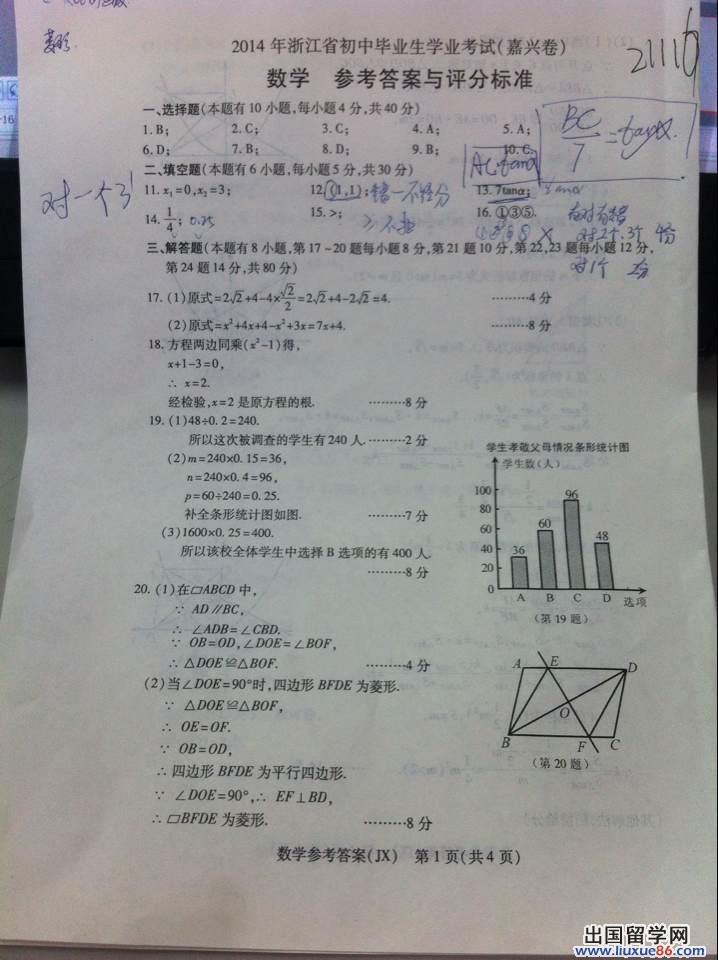 2014年浙江省初中毕业生学业考试(嘉兴卷)
21116
数学 参考答案与评分标准
一、选择题(本题有10小题,每小题4分,共40分)
1.B; 2.C; 3.C; 4.A; 5.A;
6.D; 7.B; 8.D; 9.B; 10.C.
BC/7=tanα.
AC·tanα
二、填空题(本题有6小题,每小题5分,共30分)
对一个3'
11.x₁=0,x₂=3; 12.(1,1); 13.7tanα;
14.1/4; 0.25 15.>; 16.①③⑤.
三、解答题(本题有8小题,第17~20题每小题8分,第21题10分,第22,23题每小题12分,
第24题14分,共80分)
对1个 2分
17.(1)原式=2√2+4-4×√2/2=2√2+4-2√2=4. ………4分
(2)原式=x²+4x+4-x²+3x=7x+4. ………8分
18.方程两边同乘(x²-1)得,
x+1-3=0,
∴ x=2.
经检验,x=2是原方程的根. ………8分
19.(1)48÷0.2=240.
所以这次被调查的学生有240人.………2分
(2)m=240×0.15=36,
n=240×0.4=96,
p=60÷240=0.25.
补全条形统计图如图. ………7分
(3)1600×0.25=400.
所以该校全体学生中选择B选项的有400人.
………8分
学生孝敬父母情况条形统计图
学生数(人)
100
80
60
40
20
0
36 60 96 48
A B C D 选项
(第19题)
20.(1)在▱ABCD中,
∵ AD∥BC,
∴ ∠ADB=∠CBD.
∵ OB=OD,∠DOE=∠BOF,
∴ △DOE≌△BOF. ………4分
(2)当∠DOE=90°时,四边形BFDE为菱形.
∵ △DOE≌△BOF,
∴ OE=OF.
∵ OB=OD,
∴四边形BFDE为平行四边形.
∵ ∠DOE=90°,∴ EF⊥BD,
∴ ▱BFDE为菱形. ………8分
A E D
O
B F C
(第20题)
数学参考答案(JX) 第1页(共4页)
出国留学网
www.liuxue86.com